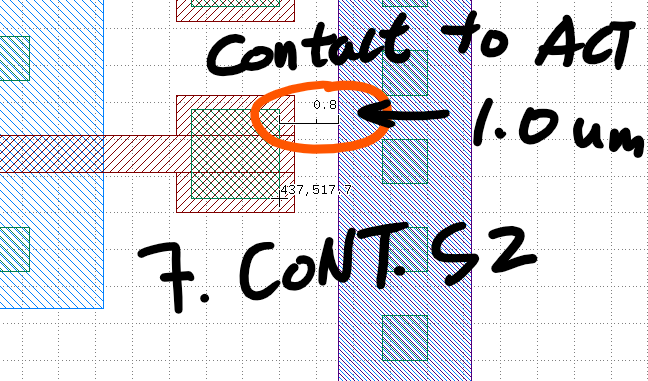 Contact to ACT
0.8
1.0 um
437,517.7
7. CONT. S2